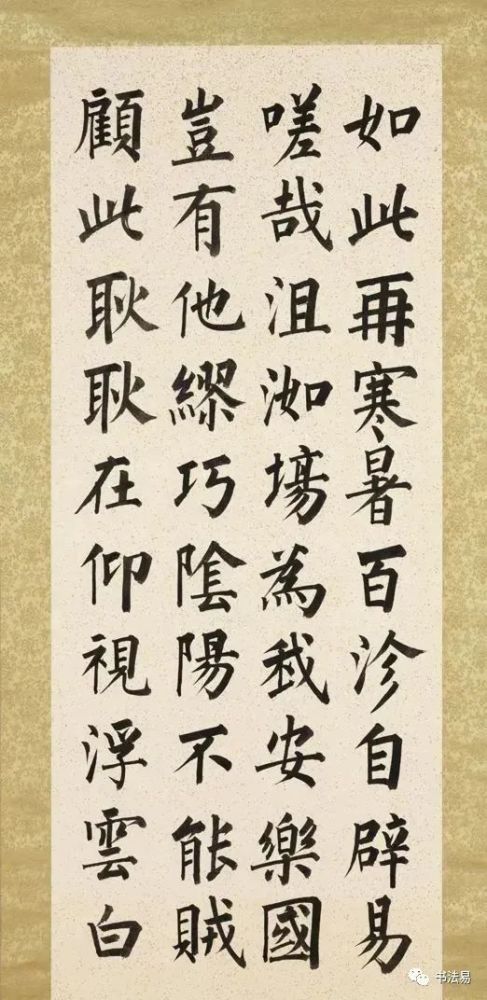 如此再寒暑百沴自辟易
嗟哉沮洳場為我安樂國
豈有他繆巧陰陽不能賊
顧此耿耿在仰視浮雲白
书法易